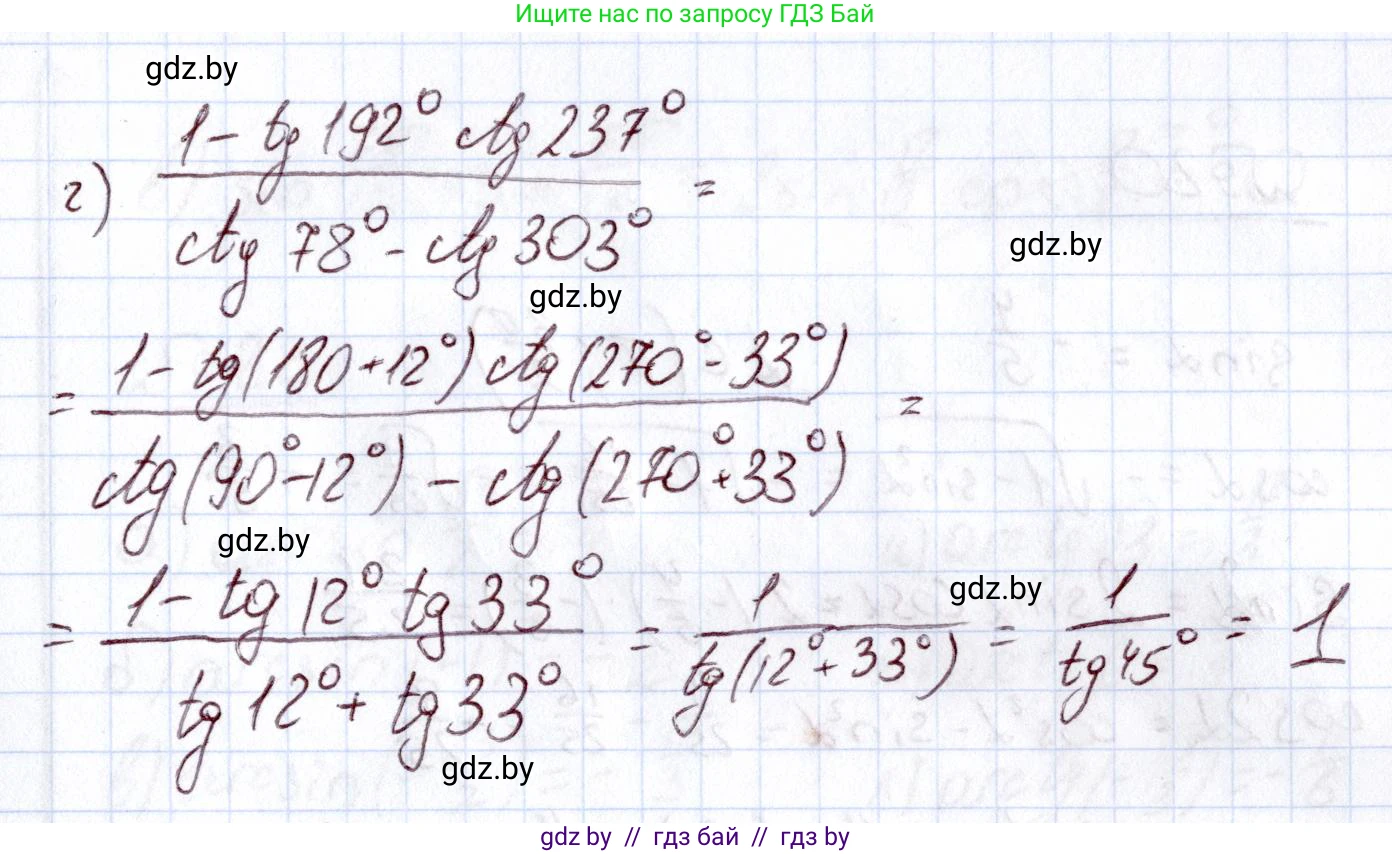 Ищите нас по запросу ГДЗ Бай
gdz.by
г) (1 - tg 192° ctg 237°) / (ctg 78° - ctg 303°) =
gdz.by
gdz.by
= (1 - tg(180+12°) ctg(270°-33°)) / (ctg(90°-12°) - ctg(270°+33°)) =
gdz.by
= (1 - tg 12° tg 33°) / (tg 12° + tg 33°) = 1 / tg(12°+33°) = 1 / tg 45° = 1
gdz.by
gdz.by
gdz by // гдз бай // гдз by